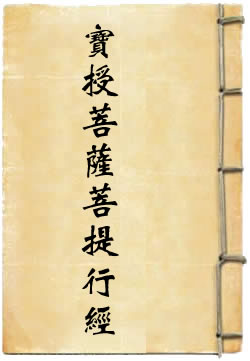 寶授菩薩菩提行經